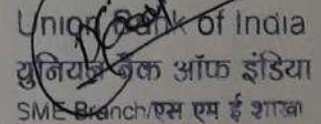 Union Bank of India
यूनियन बैंक ऑफ इंडिया
SME Branch/एस एम ई शाखा